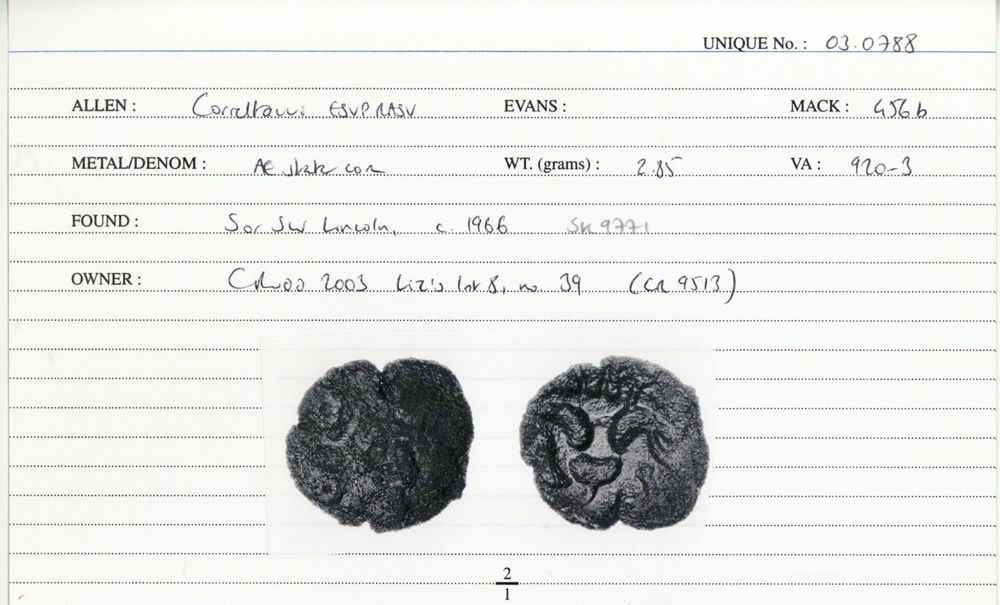 UNIQUE No. : 03.0788
ALLEN : Corieltauvi ESVPRASV EVANS : MACK : 456b
METAL/DENOM : AE stater core WT. (grams) : 2.85 VA : 920-3
FOUND : S or SW Lincoln, c. 1966 SK 9771
OWNER : 2003 Liz's list 8, no. 39 (CR 9513)
2
1